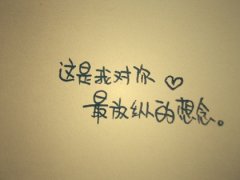 这是我对你♡
最放纵的想念。